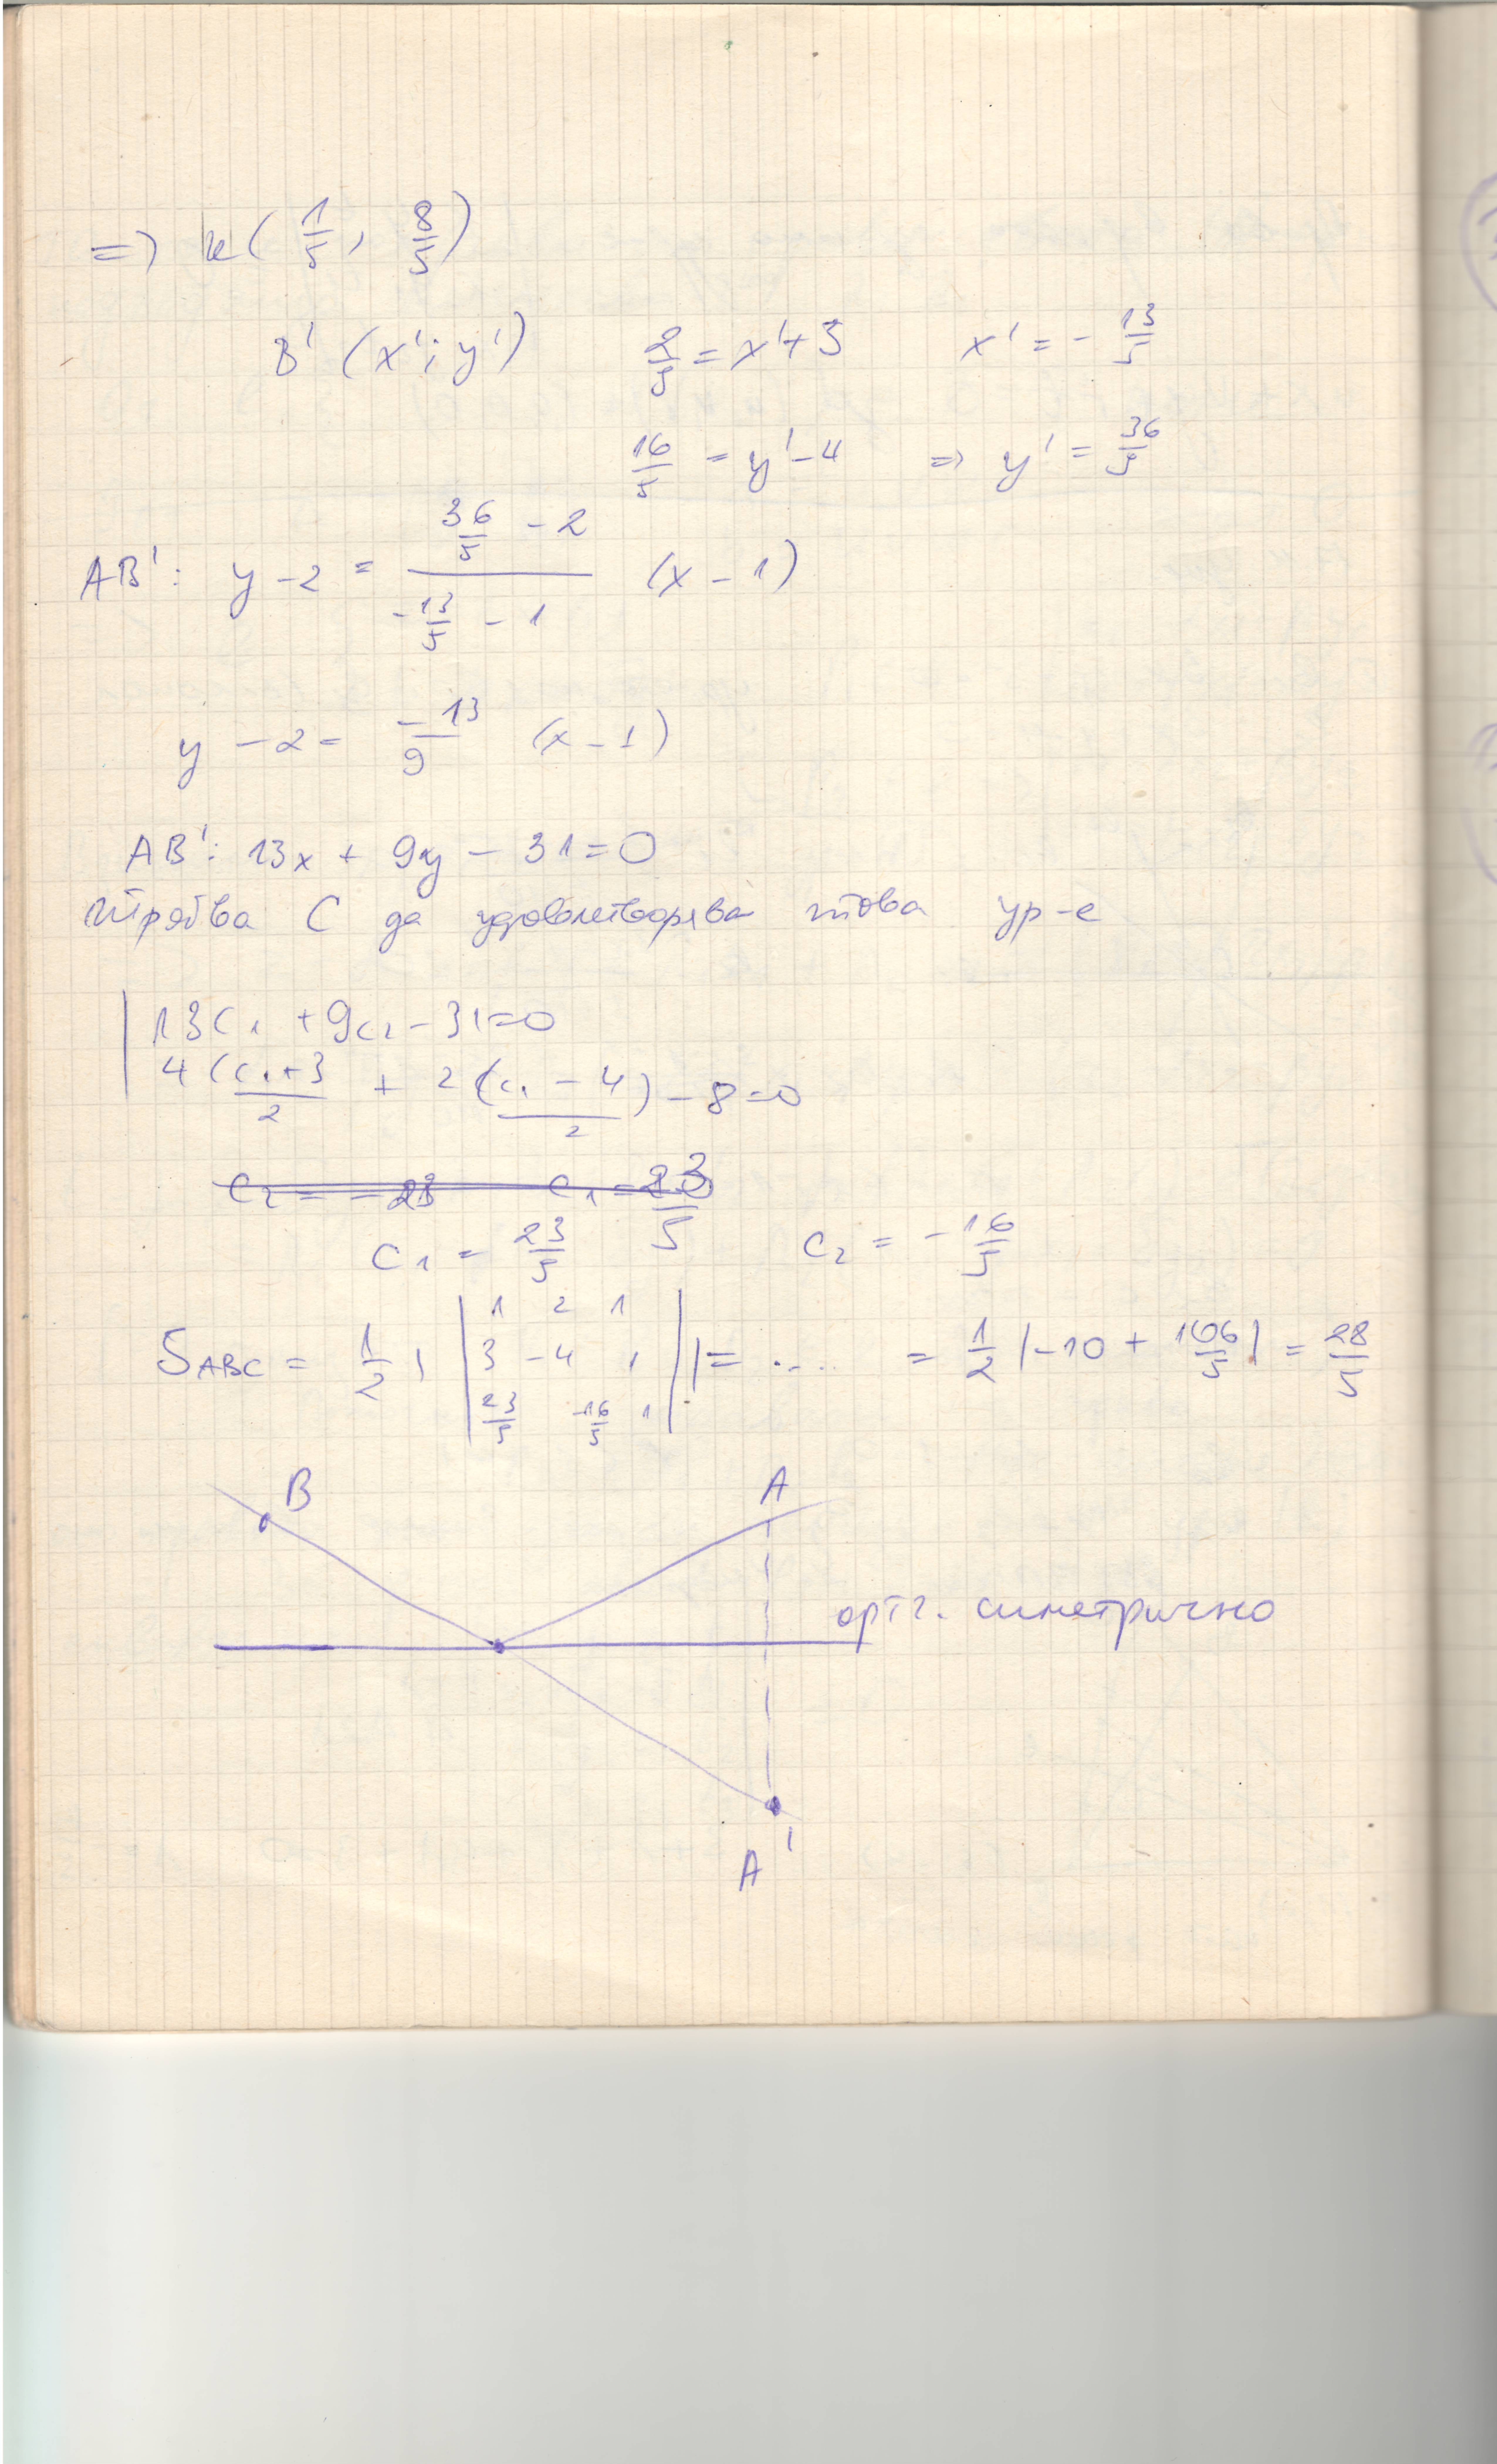 => K ( 1/5 , 8/5 )
B' (x'; y') 2/5 = x'+3 x' = - 13/5
16/5 = y' - 4 => y' = 36/5
AB': y - 2 = (36/5 - 2)/(-13/5 - 1) (x - 1)
y - 2 = -13/9 (x - 1)
AB': 13x + 9y - 31 = 0
Трябва C да удовлетворява това ур-е
| 13c₁ + 9c₂ - 31 = 0
4 (c₁+3)/2 + 2 (c₁ - 4)/2 - 8 = 0
c₁ = 23/5 c₂ = - 16/5
S ABC = 1/2 | | 1 2 1 | | = .... = 1/2 |-10 + 106/5| = 28/5
3 -4 1
23/5 -16/5 1
B A
орт. симетрично
A'